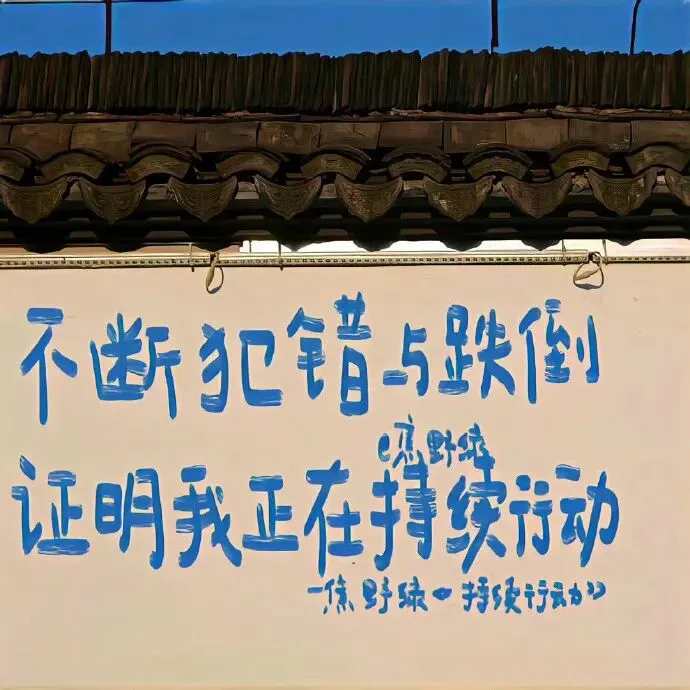 不断犯错与跌倒
@焦野绿
证明我正在持续行动
一焦野绿《持续行动》